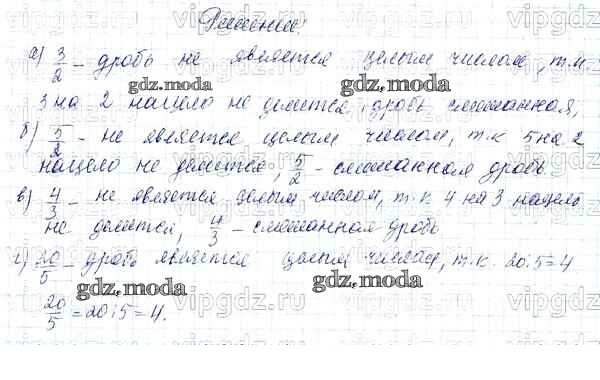 Решение.
а) 3/2 – дробь не является целым числом, т.к.
3 на 2 нацело не делится, дробь смешанная,
б) 5/2 – не является целым числом, т.к 5 на 2
нацело не делится, 5/2 – смешанная дробь
в) 4/3 – не является целым числом, т.к 4 на 3 нацело
не делится, 4/3 – смешанная дробь
г) 20/5 – дробь является целым числом, т.к. 20:5=4
20/5 = 20:5 = 4.
gdz.moda
gdz.moda
gdz.moda
gdz.moda
vipgdz.ru